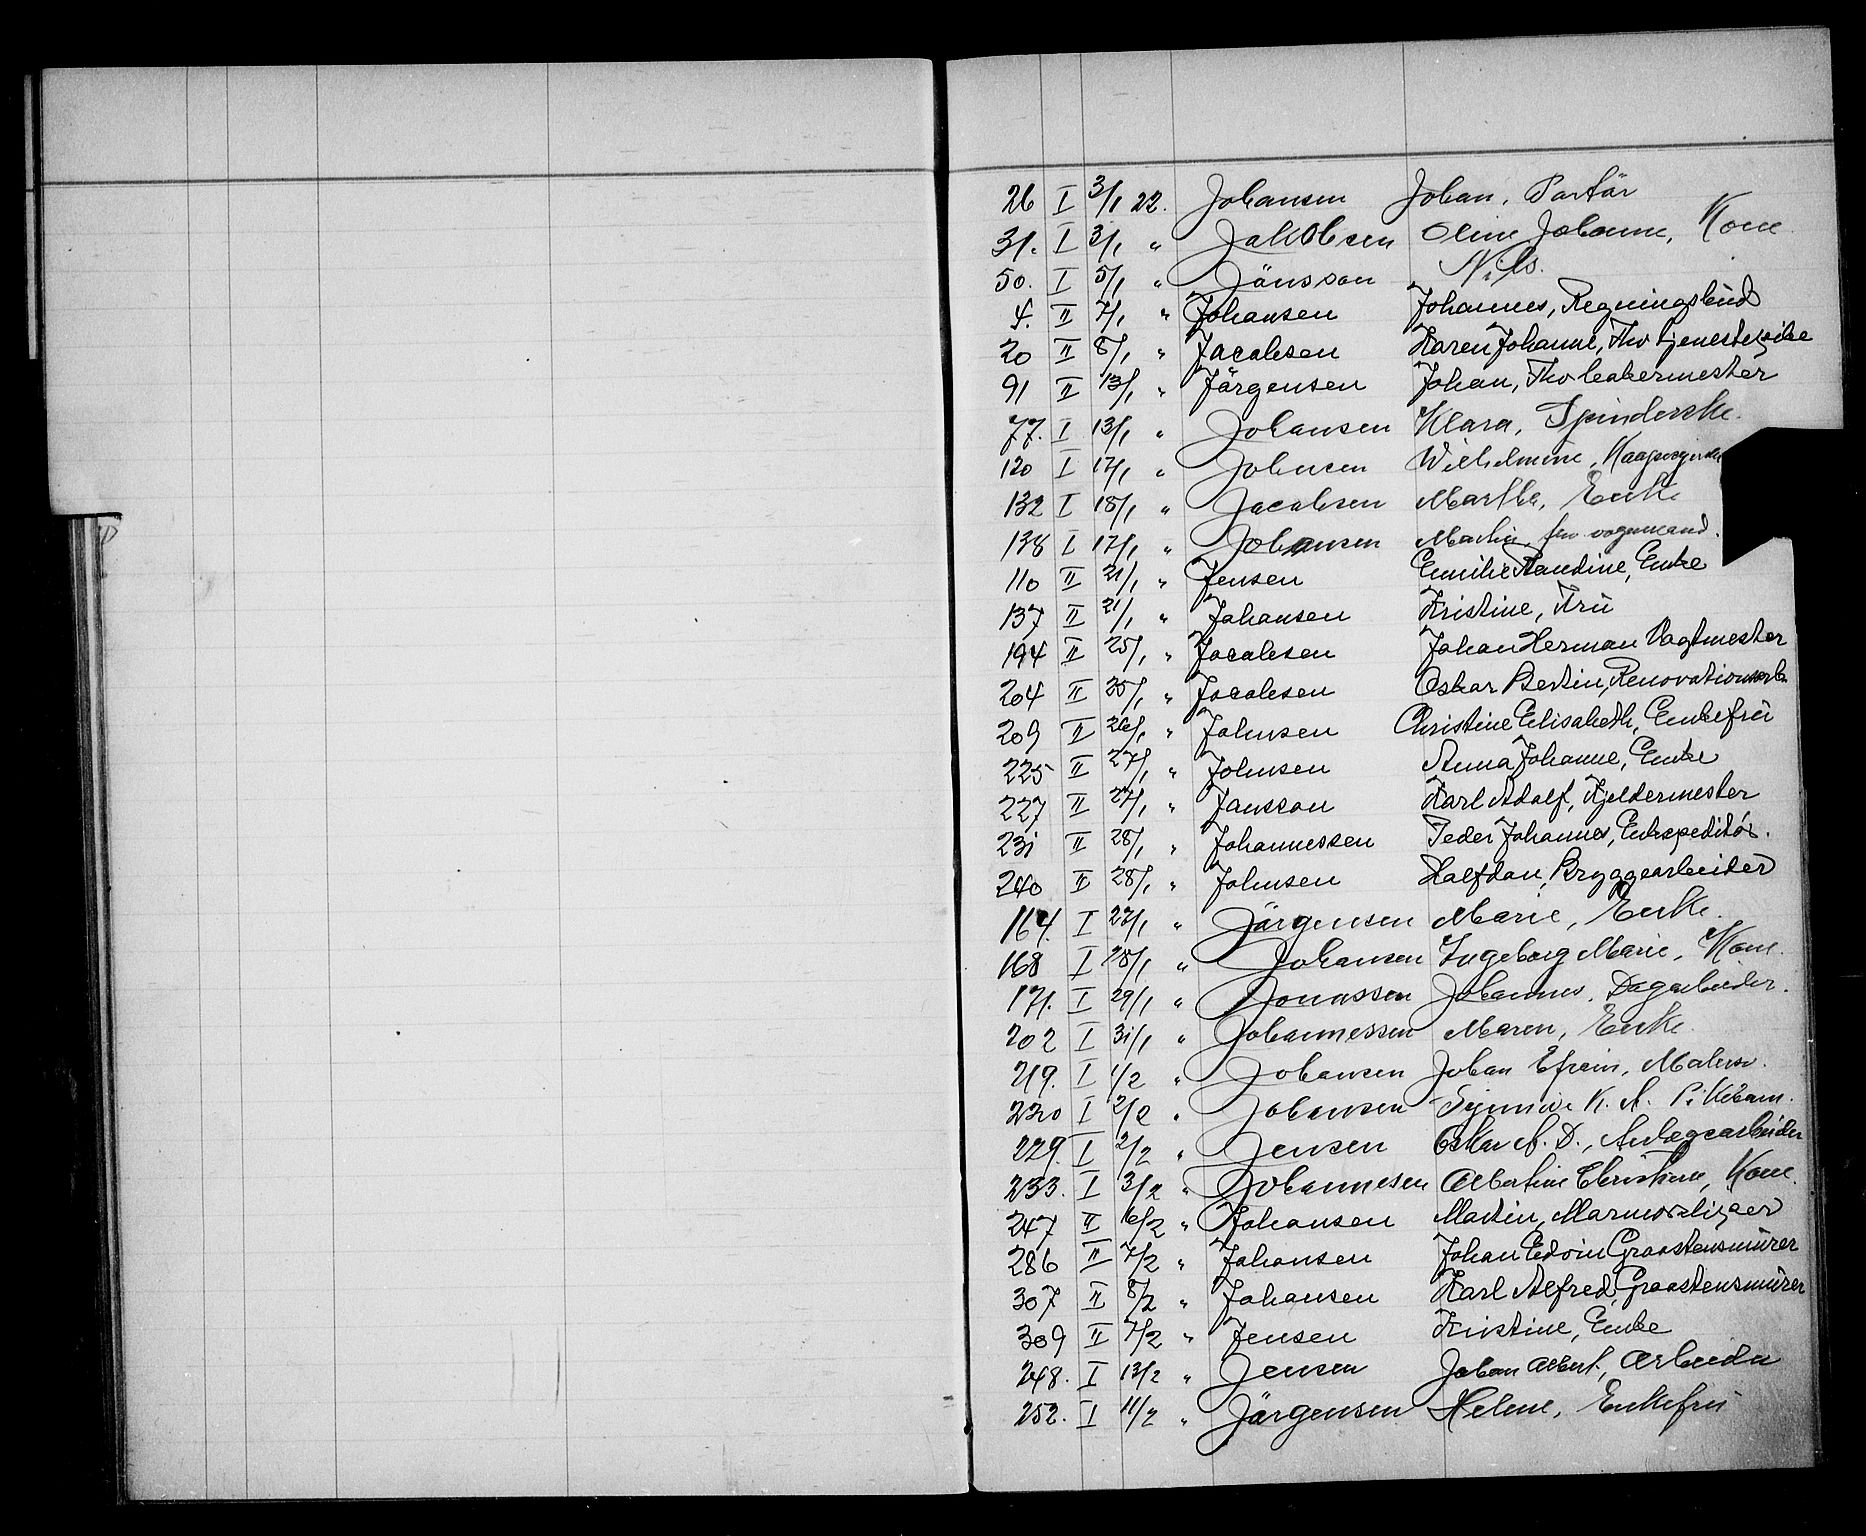 26 I 3/1 22. Johansen Johan, Portör
31. I 3/1 " Jakobsen Oline Johanne, Kone
50. I 5/1 " Jönsson Nils.
4. II 7/1 " Johansen Johannes, Regningsbud
20 II 8/1 " Jacobsen Karen Johanne, Fhv tjenestepike
91 II 13/1 " Jörgensen Johan, Fhv bakermester
77. I 13/1 " Johansen Klara, Spinderske.
120 I 17/1 " Johnsen Wilhelmine,
132 I 18/1 " Jacobsen Marthe, Enke
138 I 17/1 " Johansen Martin, fhv vognmand.
110 II 21/1 " Jensen Emilie Randine, Enke
137 II 21/1 " Johansen Kristine, Fru
194 II 25/1 " Jacobsen Johan Herman Vagtmester
204 II 25/1 " Jacobsen Oskar Bertin, Renovationsarb.
209 II 26/1 " Johnsen Christine Elisabeth, Enkefru
225 II 27/1 " Johnsen Anna Johanne, Enke
227 II 27/1 " Jansson Karl Adolf, Kjeldermester
231 II 28/1 " Johannessen Peder Johannes, Enkspeditör.
240 II 28/1 " Johnsen Halfdan, Bryggearbeider
164. I 27/1 " Jörgensen Marie, Enke.
168 I 28/1 " Johansen Ingeborg Marie, Kone.
171. I 29/1 " Jonassen Johannes, Dagarbeider.
202 I 31/1 " Johannessen Maren, Enke.
219. I 1/2 " Johansen Johan Efraim, Malersv.
220 I 2/2 " Johansen Synnöve K. A. Pikebarn.
229. I 2/2 " Jensen Oskar A. D., Anlægsarbeider
233. I 3/2 " Johannesen Albertine Christiane, Kone.
247 II 6/2 " Johansen Martin, Marmorsliper
286 II 7/2 " Johansen Johan Edvin Graastensmurer
307 II 8/2 " Johansen Karl Alfred, Graastensmurer
309 II 7/2 " Jensen Kristine, Enke
248. I 13/2 " Jensen Johan Albert, Arbeider
252. I 11/2 " Jörgensen Helene, Enkefru